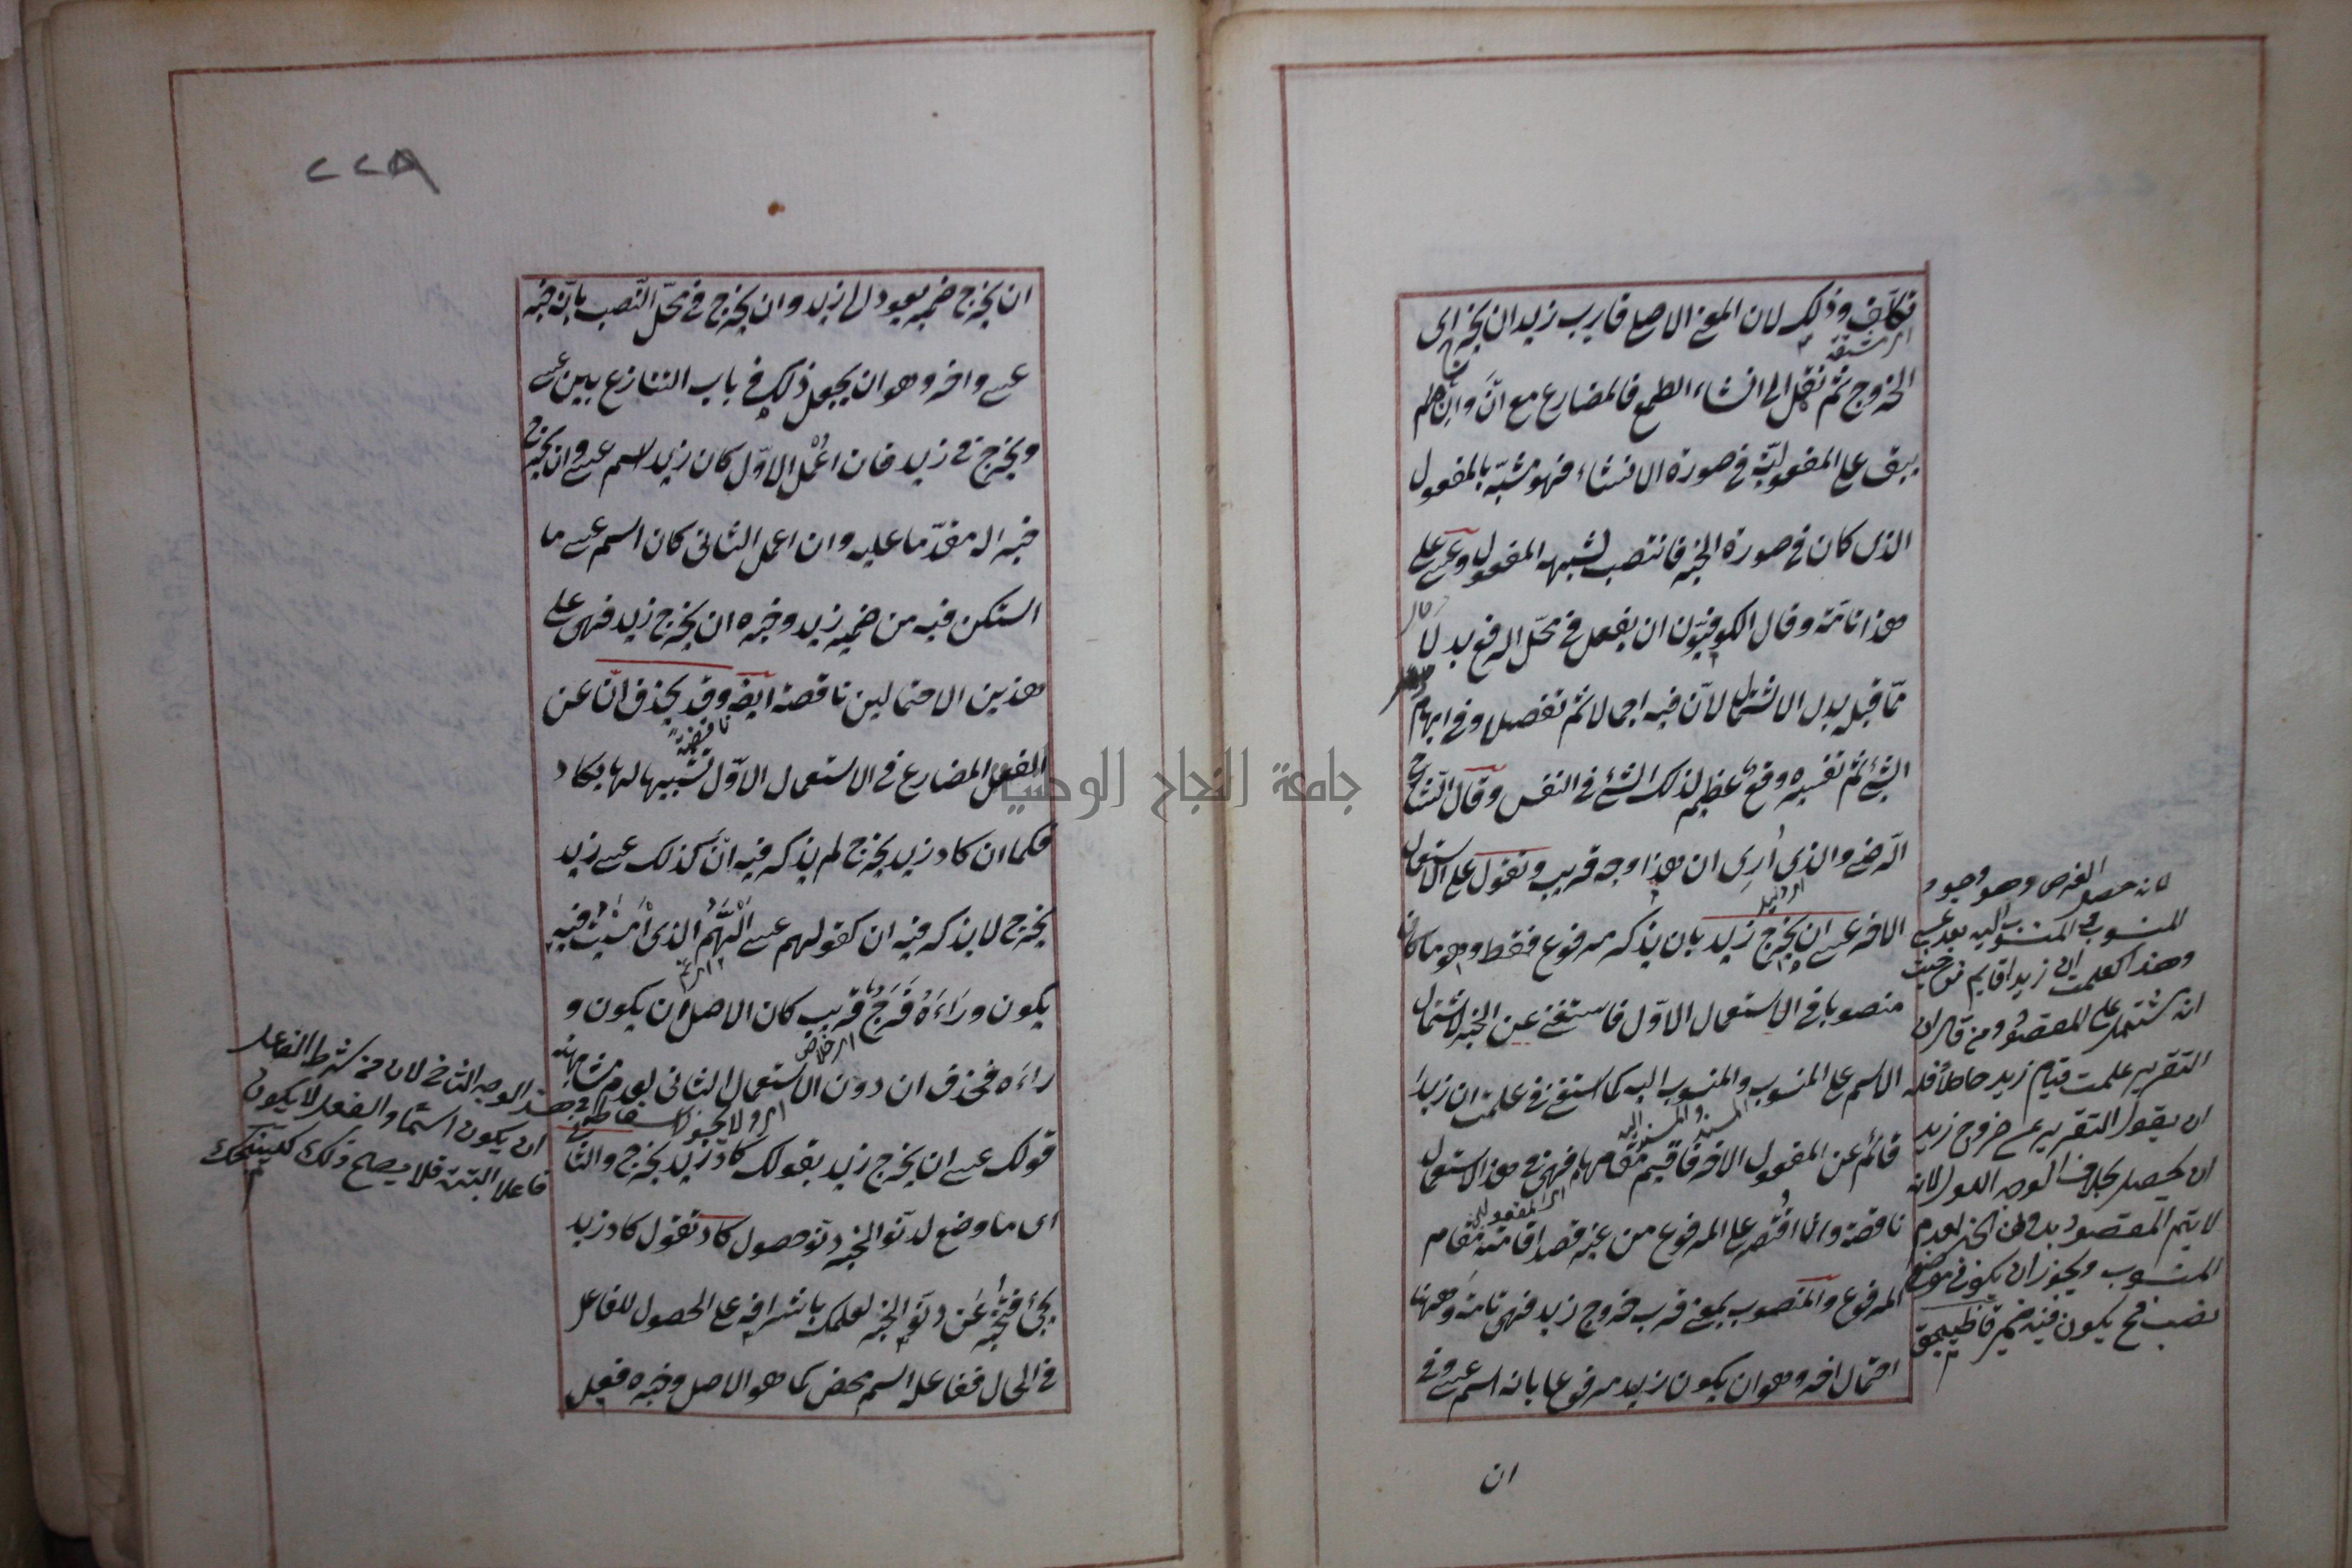 تكلف وذلك لان المعنى الاصلى قارب زيد ان يخرج اى
اى مشقة
الخروج ثم نقل الى انشاء الطمع فالمضارع مع ان وان لم
يبق على المفعولية فى صورة الانشاء فهو مشبه بالمفعول
الذى كان فى صورة الخبر فانتصب لشبهه المفعول وعسى على
هذا تامة وقال الكوفيون ان يفعل فى محل الرفع بدلا
مما قبله بدل الاشتمال لان فيه اجمالا ثم تفصيلا وفى ابهام
الشئ ثم تفسيره وقع عظيم لذلك الشئ فى النفس وقال الشارح
الرضى والذى ارى ان هذا وجه قريب وتقول على الاستعمال
الاخر عسى ان يخرج زيد بان يذكر مرفوع فقط وهو ما كان
منصوبا فى الاستعمال الاول فاستغنى عن الخبر لاشتمال
الاسم على المنسوب والمنسوب اليه كما استغنى فى علمت ان زيدا
المسند والمسند اليه
قائم عن المفعول الاخر فاقيم مقامها فهى فى هذا الاستعمال
ناقصة وانما اقتصر على المرفوع من غير قصد اقامته مقام
المرفوع والمنصوب بمعنى قرب خروج زيد فهى تامة وههنا
احتمال اخر وهو ان يكون زيد مرفوعا بانه اسم عسى وفى
ان
لانه حصل الغرض وهو وجود
المنسوب والمنسوب اليه بعد عسى
وهذا كعلمت ان زيدا قايم من حيث
انه مشتمل على المقصود ومن قال ان
التقرير علمت قيام زيد حاصلا فله
ان يقول التقرير عسى خروج زيد
ان يحصل بخلاف الوجه الاول لانه
لا يتم المقصود بدون الخبر لعدم
المنسوب ويجوز ان يكون فى موضع
نصب فح يكون فيه ضمير
٢٢٨
ان يخرج ضمير يعود الى زيد وان يخرج فى محل النصب بانه خبر
عسى واخر وهو ان يجعل ذلك فى باب التنازع بين عسى
ويخرج فى زيد فان اعمل الاول كان زيد اسم عسى وان يخرج
خبرا له مقدما عليه وان اعمل الثانى كان اسم عسى ما
استكن فيه من ضمير زيد وخبره ان يخرج زيد فهى على
هذين الاحتمالين ناقصة ايضا وقد يحذف ان عن
الفعل المضارع فى الاستعمال الاول تشبيها لها بكاد
فكما ان كاد زيد يخرج لم يذكر فيه ان كذلك عسى زيد
يخرج لا يذكر فيه ان كقولهم عسى الهم الذى امسيت فيه
يكون وراءه فرج قريب كان الاصل ان يكون و
اى خلاص
راءه فحذف ان دون الاستعمال الثانى لعدم مشابهته
اى ولا يجوز اسقاط ان
قولك عسى ان يخرج زيد بقولك كاد زيد يخرج والثا
اى ما وضع لدنو الخبر دنو حصول كاد تقول كاد زيد
يجئ فتخبر عن دنو الخبر لعلمك باشرافه على الحصول للفاعل
فى الحال ففاعله اسم محض كما هو الاصل وخبره فعل
فى هذا الوجه الثانى لان من شرط الفاعل
ان يكون اسما والفعل لا يكون
فاعلا البتة فلا يصح ذلك
جامعة النجاح الوطنية